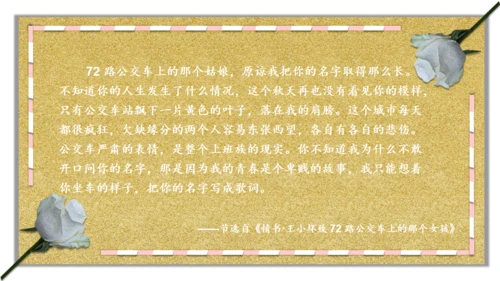 72 路公交车上的那个姑娘，原谅我把你的名字取得那么长。
不知道你的人生发生了什么情况，这个秋天再也没有看见你的模样，
只有公交车站飘下一片黄色的叶子，落在我的肩膀。这个城市每天
都很疯狂，欠缺缘分的两个人容易东张西望，各自有各自的悲伤。
公交车严肃的表情，是整个上班族的现实。你不知道我为什么不敢
开口问你的名字，那是因为我的青春是个卑贱的故事，我只能想着
你坐车的样子，把你的名字写成歌词。
——节选自《情书·王小环线 72 路公交车上的那个女孩》